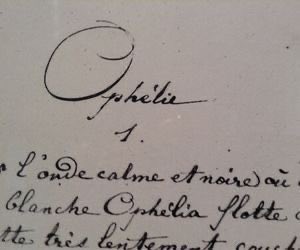 Ophélie
1.
l'onde calme et noire où
blanche Ophélia flotte
très lentement